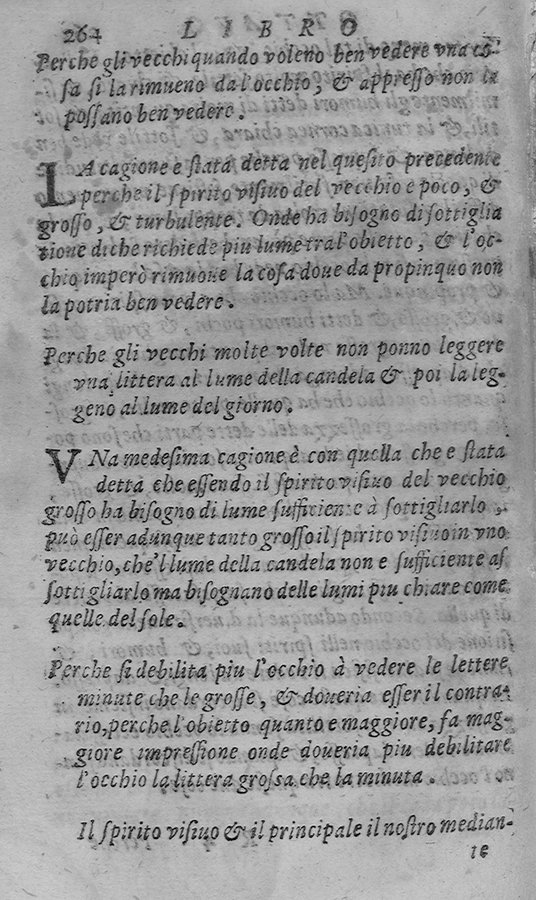 264 LIBRO
Perche gli vecchi quando voleno ben vedere vna co-
ſa ſi la rimueno da l'occhio, & appreſſo non la
poſſano ben vedere.
LA cagione e ſtata detta nel queſito precedente
perche il ſpirito viſiuo del vecchio e poco, &
groſſo, & turbulente. Onde ha biſogno di ſottiglia
tione di che richiede piu lume tra l'obietto, & l'oc-
chio imperò rimuoue la coſa doue da propinquo non
la potria ben vedere.
Perche gli vecchi molte volte non ponno leggere
vna littera al lume della candela & poi la leg-
geno al lume del giorno.
VNa medesima cagione è con quella che e ſtata
detta che eſſendo il ſpirito viſiuo del vecchio
groſſo ha biſogno di lume ſufficiente à ſottigliarlo,
può eſſer adunque tanto groſſo il ſpirito viſiuo in vno
vecchio, che'l lume della candela non e ſufficiente aſ
ſottigliarlo ma biſognano delle lumi piu chiare come
quelle del ſole.
Perche ſi debilita piu l'occhio à vedere le lettere
minute che le groſſe, & doueria eſſer il contra-
rio, perche l'obietto quanto e maggiore, fa mag-
giore impreſſione onde doueria piu debilitare
l'occhio la littera groſſa che la minuta.
Il ſpirito viſiuo & il principale il noſtro median-
te